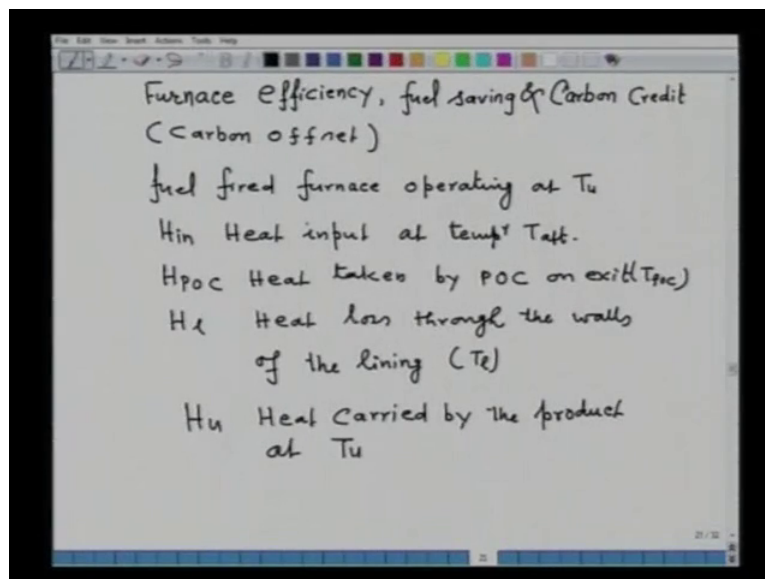 File Edit View Insert Actions Tools Help
Furnace efficiency, fuel saving & Carbon Credit
(Carbon offset)
fuel fired furnace operating at Tu
Hin Heat input at tempr Taft.
HPOC Heat taken by POC on exit (Tpoc)
Hl Heat loss through the walls
of the lining (Tl)
Hu Heat Carried by the product
at Tu
21